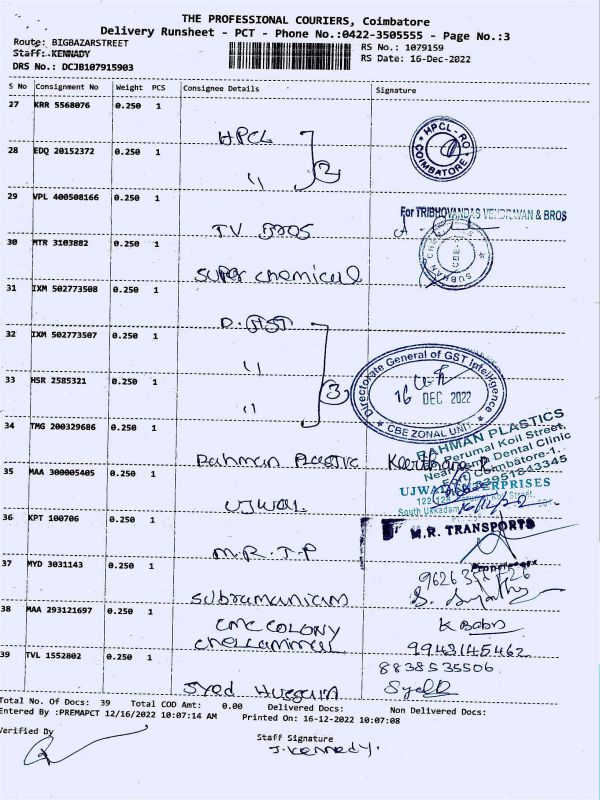 THE PROFESSIONAL COURIERS, Coimbatore
Delivery Runsheet - PCT - Phone No.:0422-3505555 - Page No.:3
Route: BIGBAZARSTREET
Staff: KENNADY
DRS No.: DCJB107915903
RS No.: 1079159
RS Date: 16-Dec-2022
S No Consignment No Weight PCS Consignee Details Signature
27 KRR 5568076 0.250 1
HPCL
HPCL - RO COIMBATORE
28 EDQ 20152372 0.250 1
" 2
29 VPL 400508166 0.250 1
TV BROS
For TRIBHOVANDAS VENDRAVAN & BROS
30 MTR 3103882 0.250 1
Super chemical
31 IXM 502773508 0.250 1
D. GST
32 IXM 502773507 0.250 1
"
33 HSR 2585321 0.250 1
" 3
Directorate General of GST Intelligence
16 DEC 2022
CBE ZONAL UNIT
34 TMG 200329686 0.250 1
Rahman Plastic
RAHMAN PLASTICS
Perumal Koil Street,
Dental Clinic
Coimbatore-1.
35 MAA 300005405 0.250 1
UJWAL
ENTERPRISES
South Ukkadam
16/12/22
36 KPT 100706 0.250 1
M.R.T.P
M.R. TRANSPORTS
Proprietors
37 MYD 3031143 0.250 1
Subramanium
38 MAA 293121697 0.250 1
CMC COLONY
K Babu
9943145462
39 TVL 1552802 0.250 1
8838535506
Syed Hussain
Syed
Total No. Of Docs: 39 Total COD Amt: 0.00 Delivered Docs: Non Delivered Docs:
Entered By :PREMAPCT 12/16/2022 10:07:14 AM Printed On: 16-12-2022 10:07:08
Verified By
Staff Signature
J. Kennedy.